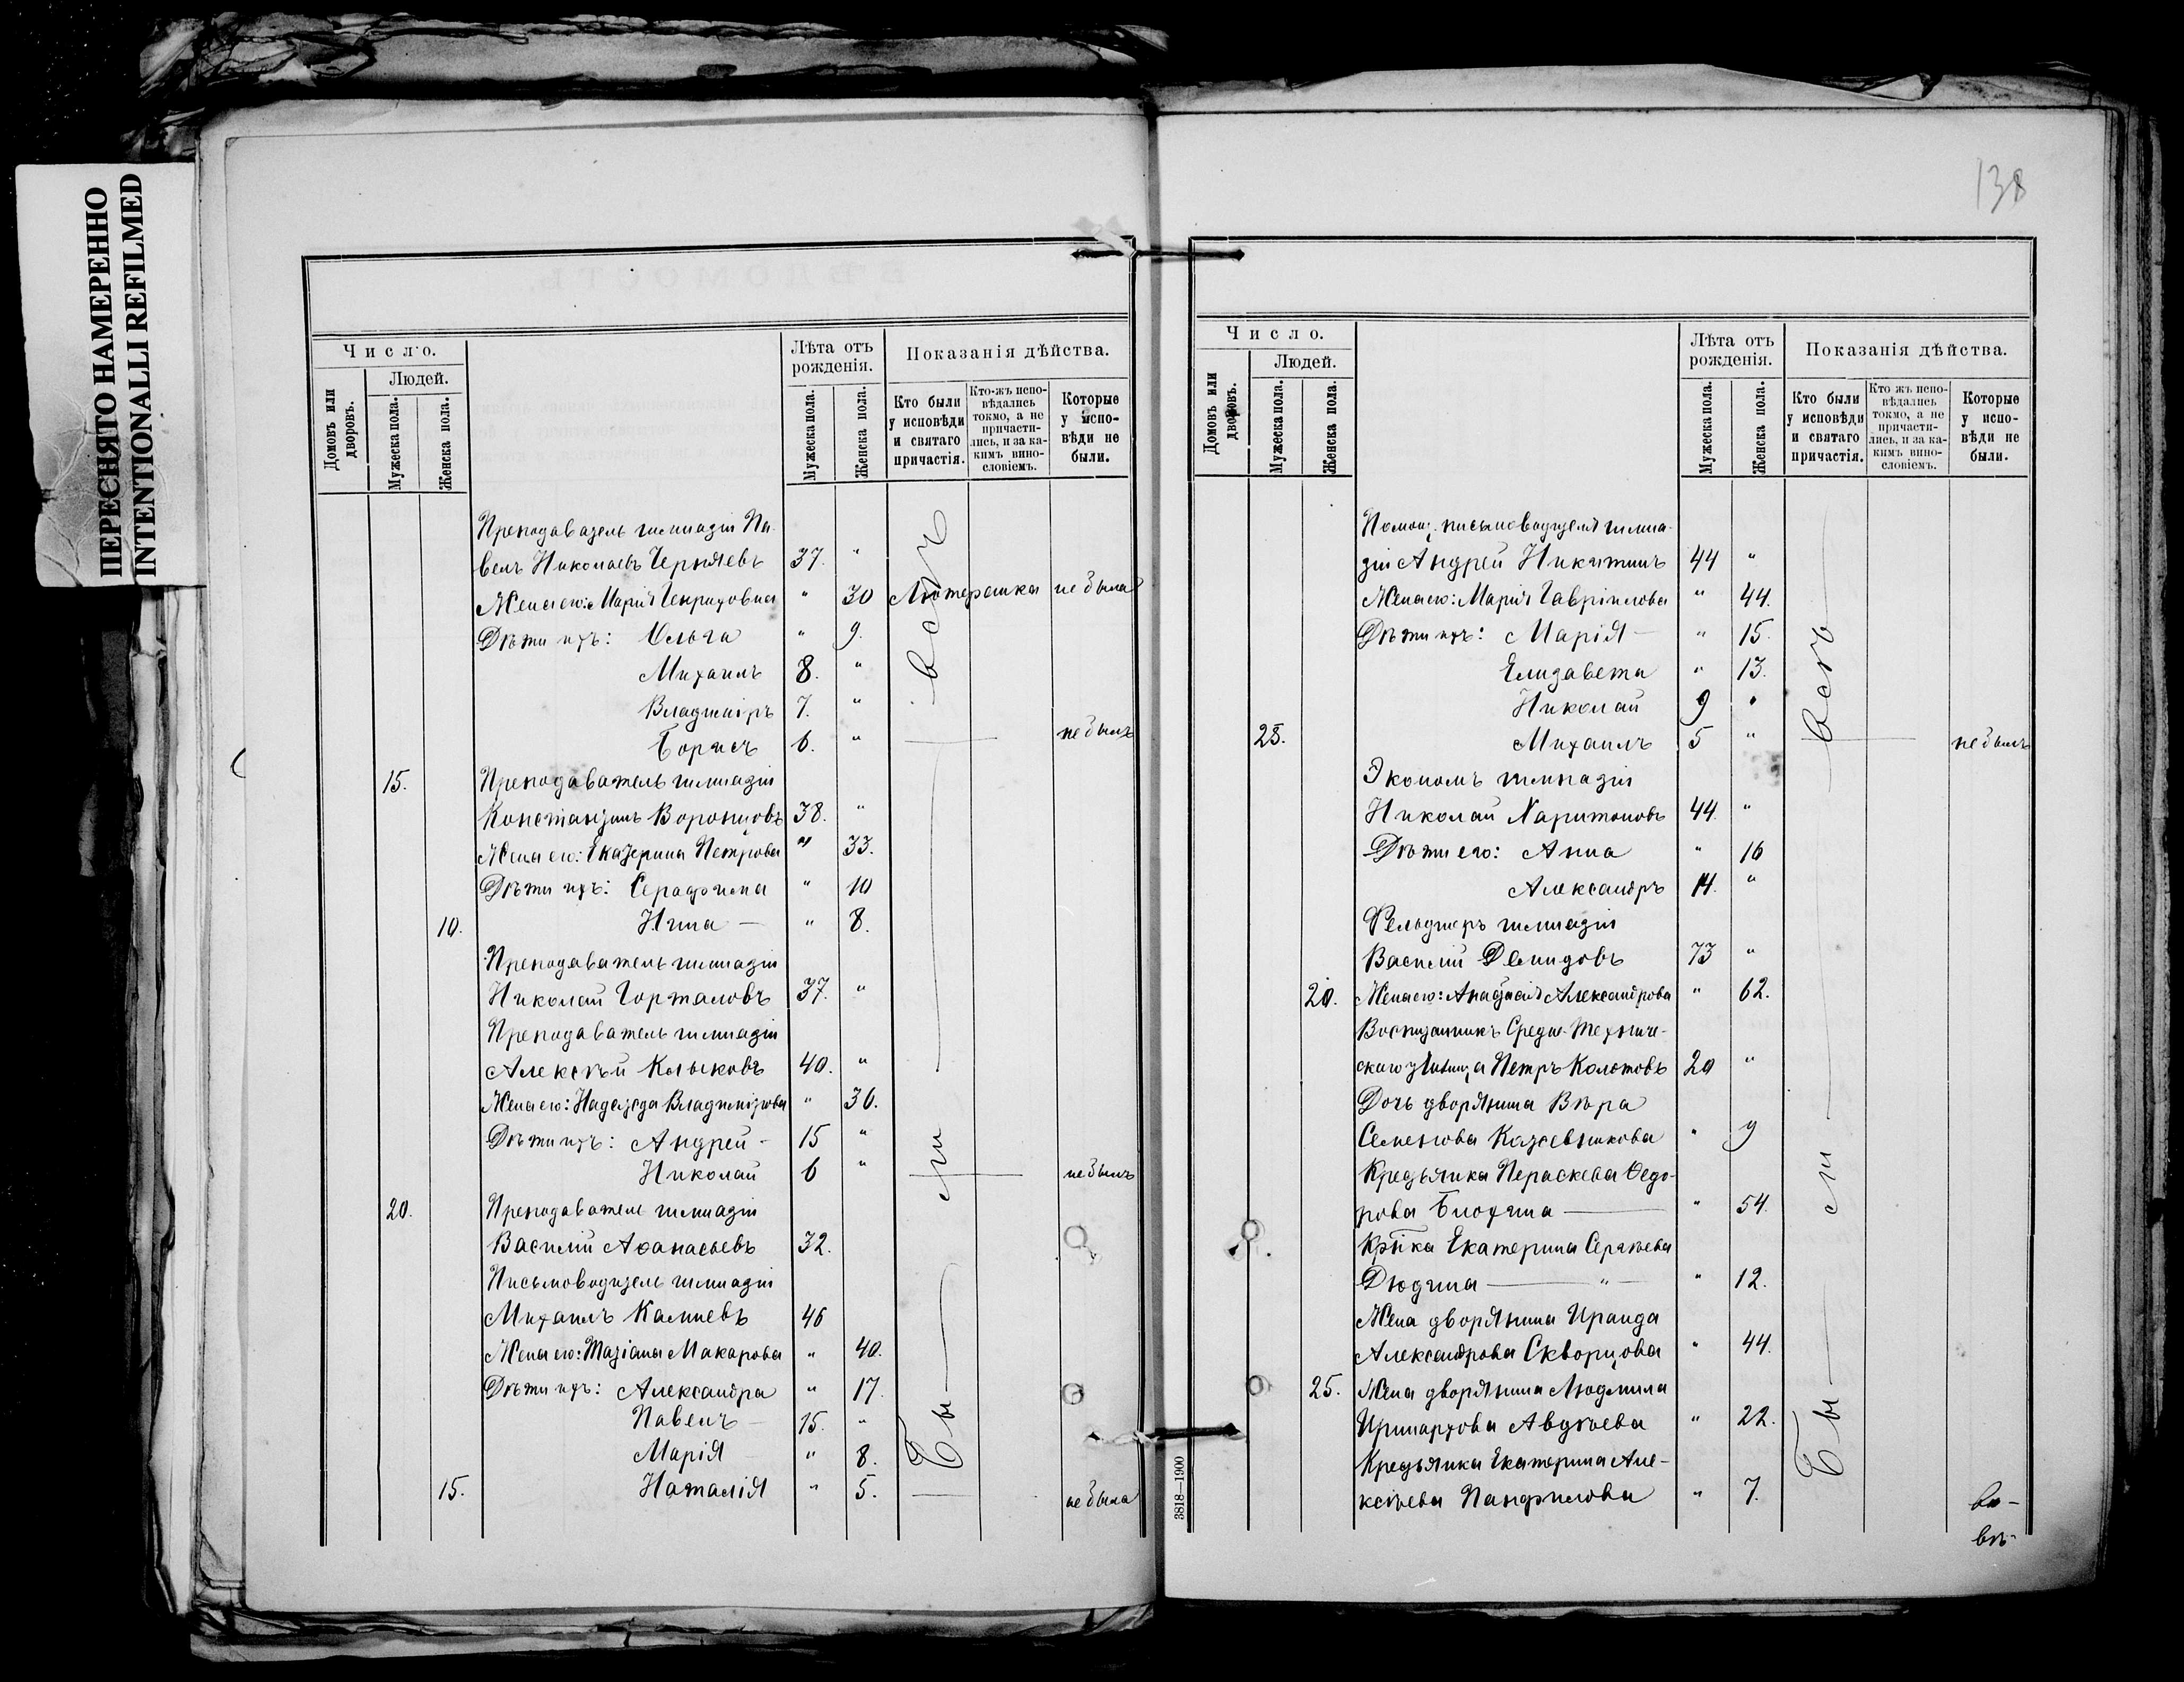 ПЕРЕСНЯТО НАМЕРЕННО
INTENTIONALLI REFILMED
Число.
Домовъ или дворовъ.
Людей.
Мужеска пола.
Женска пола.
Лѣта отъ рожденія.
Мужеска пола.
Женска пола.
Показанія дѣйства.
Кто были у исповѣди и святаго причастія.
Кто-жъ исповѣдались токмо, а не причастились, и за какимъ винословіемъ.
Которые у исповѣди не были.
Преподаватель гимназіи Па-
велъ Николаевъ Черняевъ 37. "
Жена его: Марія Генриховна " 30 Лютеранка не была
Дѣти ихъ: Ольга " 9.
Михаилъ 8. "
Владиміръ 7. "
Борисъ 6. " не былъ
15. Преподаватель гимназіи
Константинъ Воронцовъ 38. "
Жена его: Екатерина Петрова " 33.
Дѣти ихъ: Серафима " 10
10. Нина — " 8.
Преподаватель гимназіи
Николай Горталовъ 37. "
Преподаватель гимназіи
Алексѣй Колысковъ 40. "
Жена его: Надежда Владимірова " 36.
Дѣти ихъ: Андрей - 15 "
Николай 6 " не былъ
20. Преподаватель гимназіи
Василій Аѳанасьевъ 32.
Письмоводитель гимназіи
Михаилъ Калиевъ 46
Жена его: Татіана Макарова " 40.
Дѣти ихъ: Александра " 17.
Павелъ — 15. "
Марія " 8.
15. Наталія " 5. не была
Бы ли всѣ
138
Число.
Домовъ или дворовъ.
Людей.
Мужеска пола.
Женска пола.
Лѣта отъ рожденія.
Мужеска пола.
Женска пола.
Показанія дѣйства.
Кто были у исповѣди и святаго причастія.
Кто жъ исповѣдались токмо, а не причастились, и за какимъ винословіемъ.
Которые у исповѣди не были.
Помощ. письмоводителя гимна-
зіи Андрей Никитинъ 44 "
Жена его: Марія Гавріилова " 44.
Дѣти ихъ: Марія — " 15.
Елизавета " 13.
Николай 9 "
25. Михаилъ 5 " не былъ
Экономъ гимназіи
Николай Харитоновъ 44. "
Дѣти его: Анна " 16
Александръ 14. "
Фельдшеръ гимназіи
Василій Демидовъ 73 "
20. Жена его: Александрова " 62.
Воспитанникъ Средне-Техниче-
скаго училища Петръ Колотовъ 20 "
Дочь дворянина Вѣра
Семенова Кожевникова " 9
Крестьянка Параскева Ѳедо-
рова Блохина — " 54.
Кр-ка Екатерина Сергѣева
Дюдина — " — " 12.
Жена дворянина Ираида
Александрова Скворцова " 44.
25. Жена дворянина Людмила
Иринархова Авдѣева " 22.
Крестьянка Екатерина Але-
ксѣева Панфилова " 7.
Бы ли всѣ
3818—1900